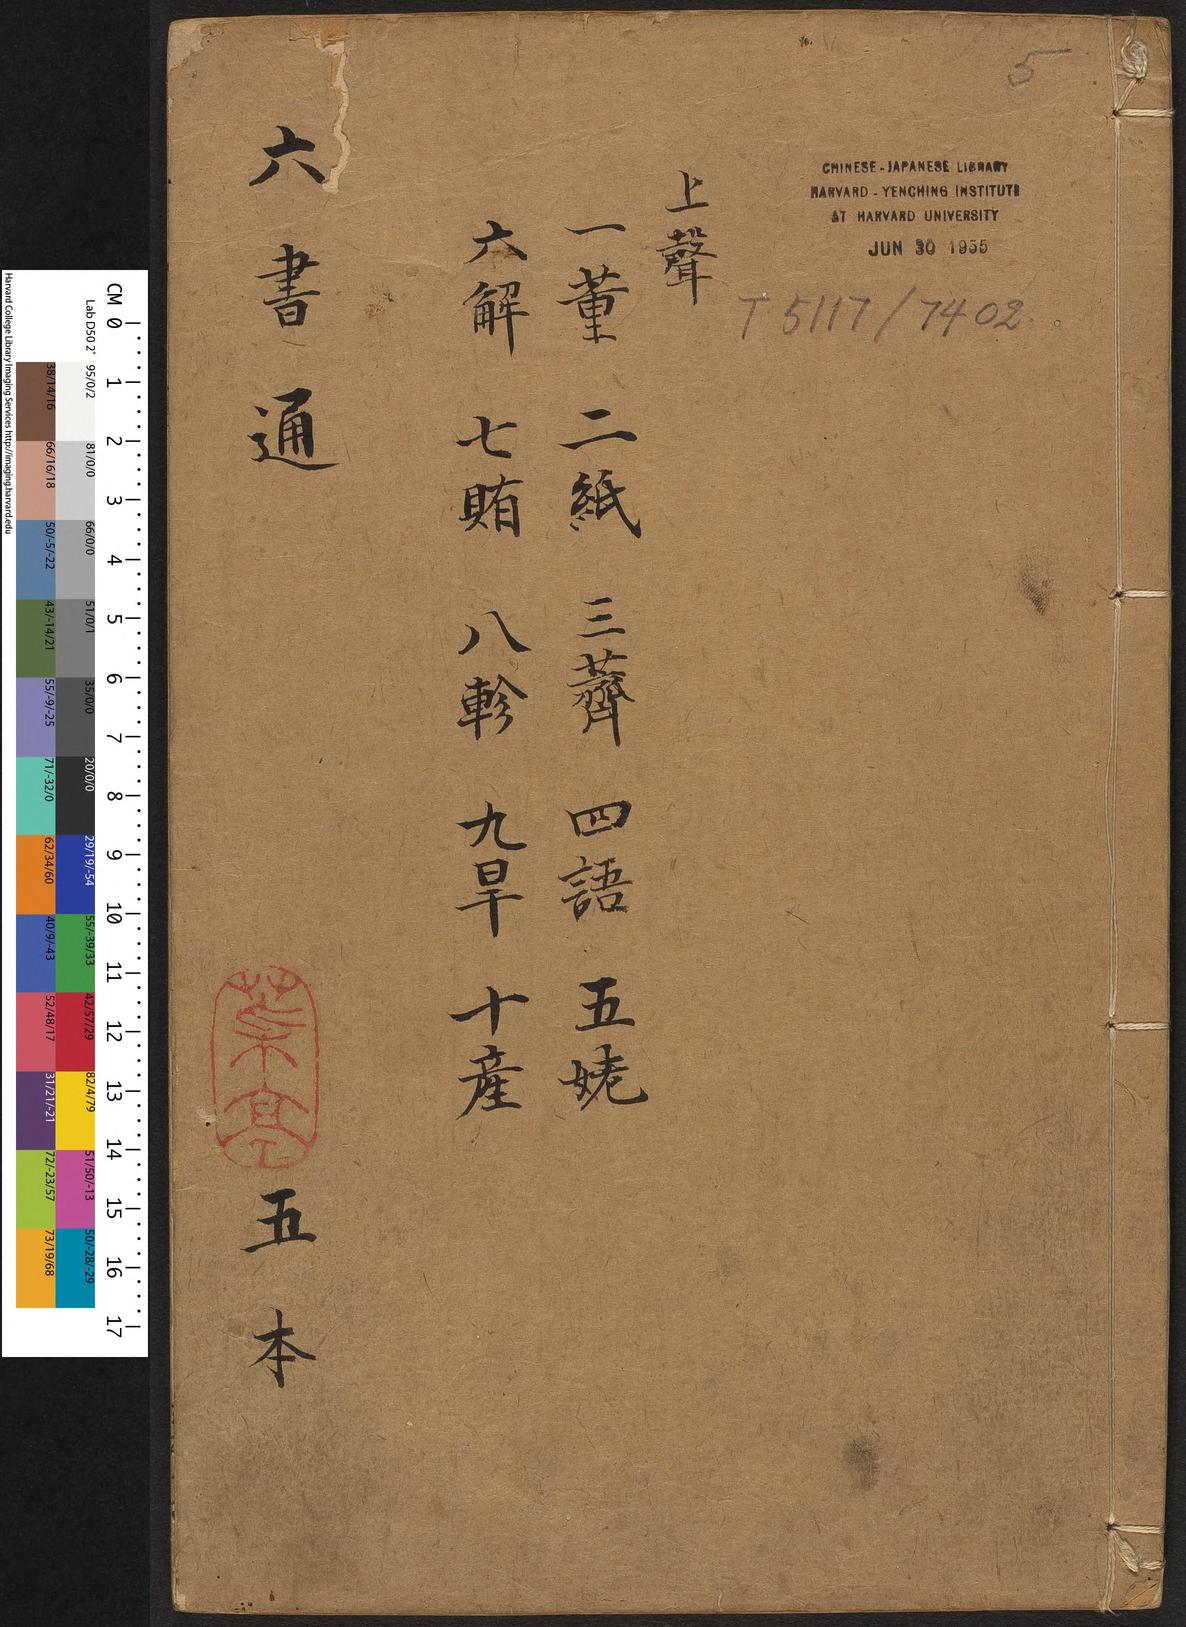 5
CHINESE-JAPANESE LIBRARY
HARVARD-YENCHING INSTITUTE
AT HARVARD UNIVERSITY
JUN 30 1955
T 5117/7402
上聲
一董 二紙 三薺 四語 五姥
六解 七賄 八軫 九旱 十産
六書通 五本
CM 0 1 2 3 4 5 6 7 8 9 10 11 12 13 14 15 16 17
Lab D50 2° 95/0/2 81/0/0 66/0/0 51/0/1 35/0/0 20/0/0 29/19/-54 55/-39/33 42/57/29 82/4/79 51/50/-13 50/-28/-29
38/14/16 66/16/18 50/-5/-22 43/-14/21 55/-9/-25 71/-32/0 62/34/60 40/9/-43 52/48/17 31/21/-21 72/-23/57 73/19/68
Harvard College Library Imaging Services http://imaging.harvard.edu